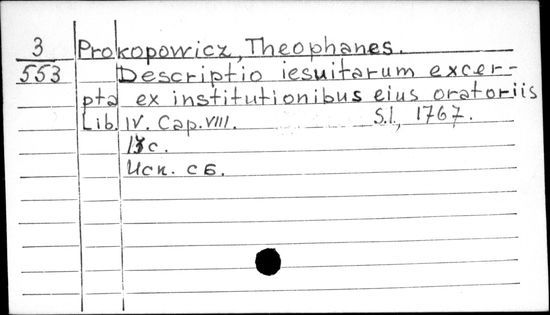 3 Prokopowicz, Theophanes.
553 Descriptio iesuitarum excer-
pta ex institutionibus eius oratoriis
Lib. IV. Cap. VIII. S.l., 1767.
с.
Исп. СБ.